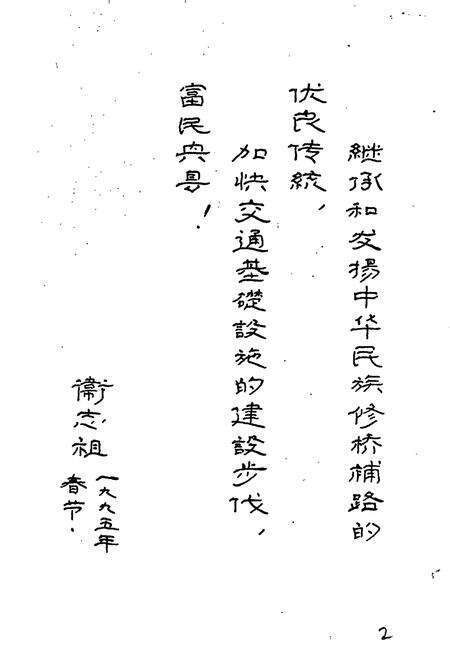 継承和发揚中华民族修桥補路的
优良传統，
加快交通基礎設施的建設步伐，
富民兴县！
衛志祖
一九九五年
春节.
2